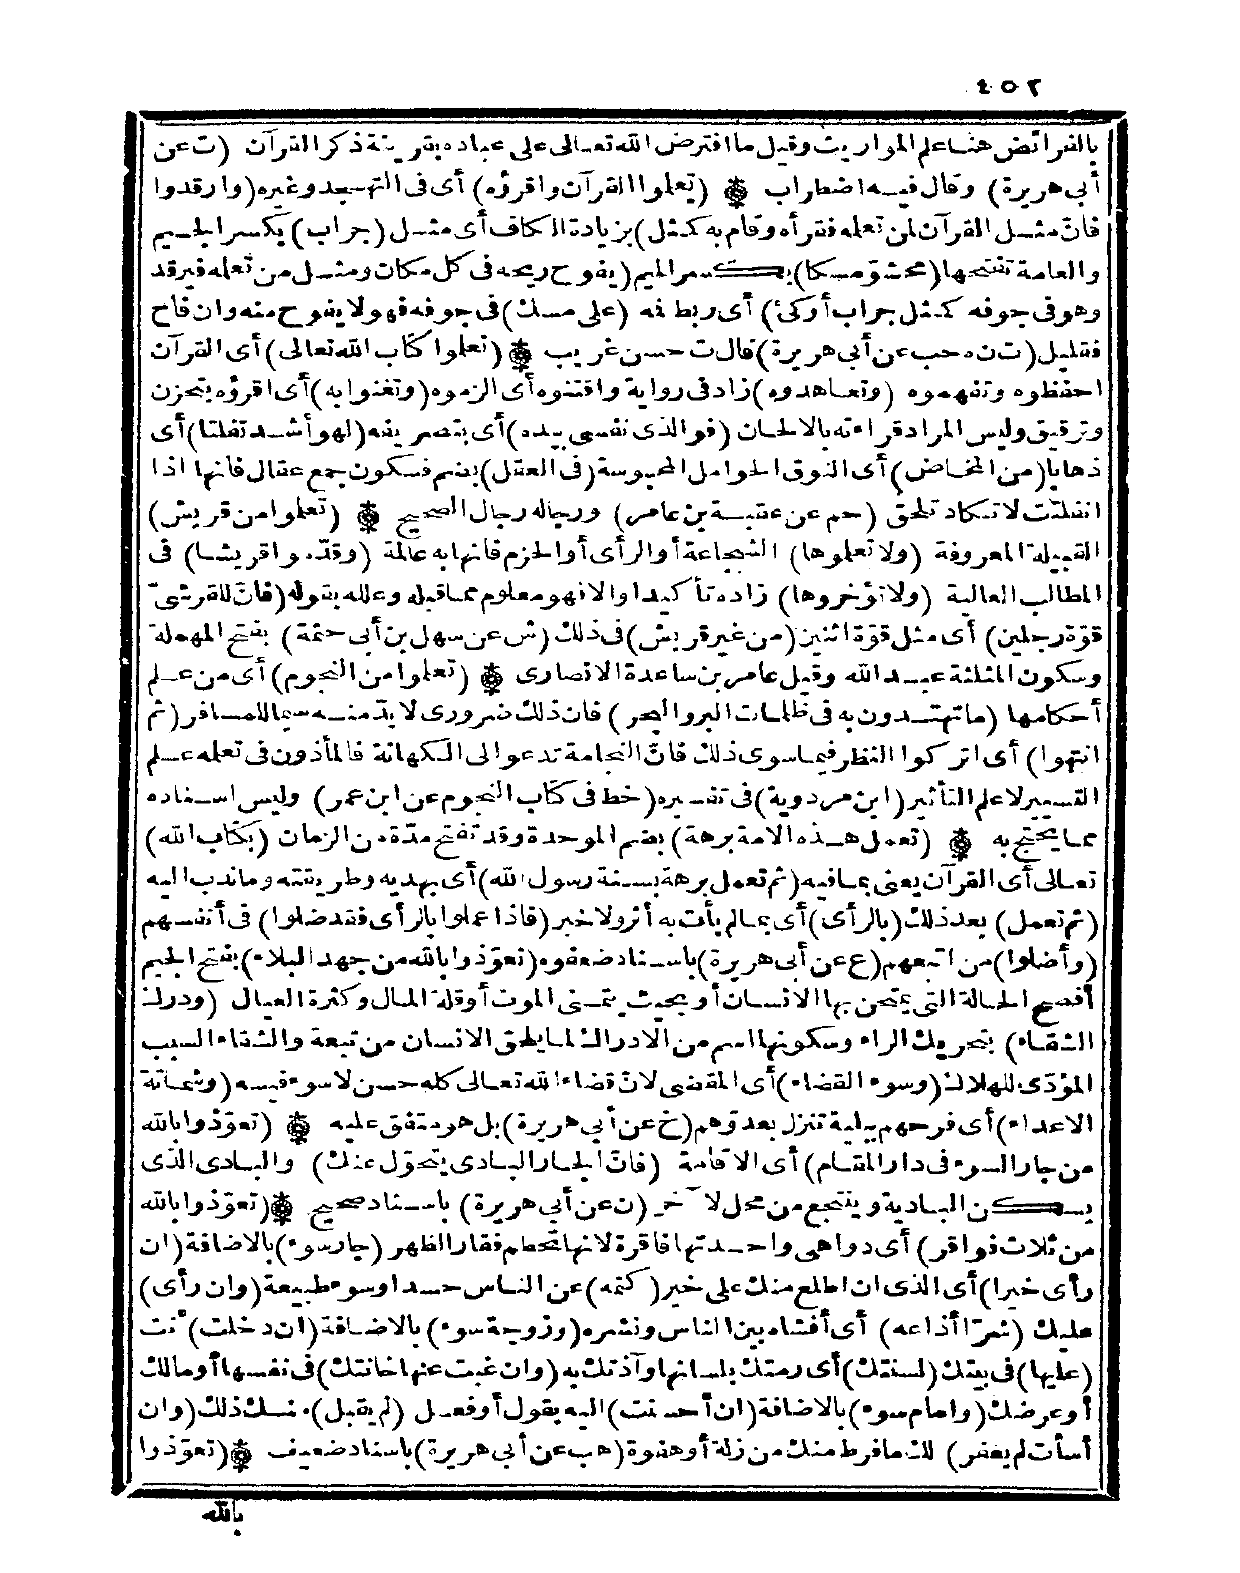 ٤٥٢
بالفرائض هنا علم المواريث وقيل ما افترض الله تعالى على عباده بقرينة ذكر القرآن (ت عن
أبي هريرة) وقال فيه اضطراب ۞ (تعلموا القرآن واقرؤه) أى فى التهجد وغيره (وارقدوا
فانّ مثل القرآن لمن تعلمه فقرأه وقام به كمثل) بزيادة الكاف أى مثل (جراب) بكسر الجيم
والعامة تفتحها (محشوّ مسكا) بكسر الميم (يفوح ريحه فى كل مكان ومثل من تعلمه فيرقد
وهو فى جوفه كمثل جراب أوكئ) أى ربط فمه (على مسك) فى جوفه فهو لا يفوح منه وان فاح
فقليل (ت ن ه حب عن أبى هريرة) قال ت حسن غريب ۞ (تعلموا كتاب الله تعالى) أى القرآن
احفظوه وتفهموه (وتعاهدوه) زاد فى رواية واقتنوه أى الزموه (وتغنوا به) أى اقرؤه بتحزن
وترقيق وليس المراد قراءته بالالحان (فوالذى نفسى بيده) أى بتصريفه (لهو أشد تفلتا) أى
ذهابا (من المخاض) أى النوق الحوامل المحبوسة (فى العقل) بضم فسكون جمع عقال فانها اذا
انفلتت لا تكاد تلحق (حم عن عقبة بن عامر) ورجاله رجال الصحيح ۞ (تعلموا من قريش)
القبيلة المعروفة (ولا تعلموها) الشجاعة أو الرأى أو الحزم فانها به عالمة (وقدّموا قريشا) فى
المطالب العالية (ولا تؤخروها) زاده تأكيدا والا فهو معلوم مما قبله وعلله بقوله (فانّ للقرشىّ
قوّة رجلين) أى مثل قوّة اثنين (من غير قريش) فى ذلك (ش عن سهل بن أبى حثمة) بفتح المهملة
وسكون المثلثة عبد الله وقيل عامر بن ساعدة الانصارى ۞ (تعلموا من النجوم) أى من علم
أحكامها (ما تهتدون به فى ظلمات البر والبحر) فان ذلك ضرورى لا بدّ منه سيما للمسافر (ثم
انتهوا) أى اتركوا النظر فيما سوى ذلك فانّ النجامة تدعو الى الكهانة فالمأذون فى تعلمه علم
التسيير لا علم التأثير (ابن مردوية) فى تفسيره (خط فى كتاب النجوم عن ابن عمر) وليس اسناده
مما يحتج به ۞ (تعمل هذه الامة برهة) بضم الموحدة وقد تفتح مدّة من الزمان (بكتاب الله)
تعالى أى القرآن يعنى بما فيه (ثم تعمل برهة بسنة رسول الله) أى بهديه وطريقته وما ندب اليه
(ثم تعمل) بعد ذلك (بالرأى) أى بما لم يأت به أثر ولا خبر (فاذا عملوا بالرأى فقد ضلوا) فى أنفسهم
(وأضلوا) من اتبعهم (ع عن أبى هريرة) باسناد ضعفوه (تعوّذوا بالله من جهد البلاء) بفتح الجيم
أفصح الحالة التى يمتحن بها الانسان أو بحيث يتمنى الموت أو قلة المال وكثرة العيال (ودرك
الشقاء) بتحريك الراء وسكونها اسم من الادراك لما يلحق الانسان من تبعة والشقاء السبب
المؤدّى للهلاك (وسوء القضاء) أى المقضى لانّ قضاء الله تعالى كله حسن لا سوء فيه (وشماتة
الاعداء) أى فرحهم ببلية تنزل بعدوّهم (خ عن أبى هريرة) بل هو متفق عليه ۞ (تعوّذوا بالله
من جار السوء فى دار المقام) أى الاقامة (فانّ الجار البادى يتحوّل عنك) والبادى الذى
يسكن البادية وينتجع من محل لآخر (ن عن أبى هريرة) باسناد صحيح ۞ (تعوّذوا بالله
من ثلاث فواقر) أى دواهى واحدتها فاقرة لانها تحطم فقار الظهر (جار سوء) بالاضافة (ان
رأى خيرا) أى الذى ان اطلع منك على خير (كتمه) عن الناس حسدا وسوء طبيعة (وان رأى)
عليك (شرّا أذاعه) أى أفشاه بين الناس ونشره (وزوجة سوء) بالاضافة (ان دخلت) أنت
(عليها) فى بيتك (لسنتك) أى رمتك بلسانها وآذتك به (وان غبت عنها خانتك) فى نفسها أو مالك
أو عرضك (وامام سوء) بالاضافة (ان أحسنت) اليه بقول أو فعل (لم يقبل) منك ذلك (وان
أسأت لم يغفر) لك ما فرط منك من زلة أو هفوة (هب عن أبى هريرة) باسناد ضعيف ۞ (تعوّذوا
بالله